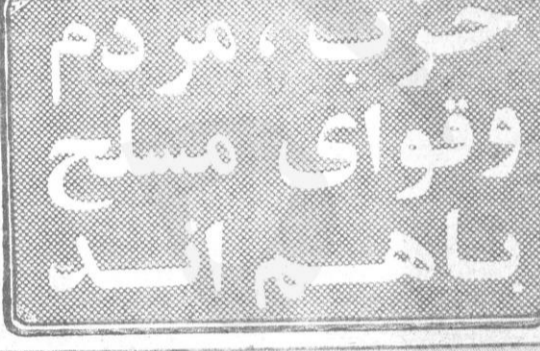 حزب، مردم
وقوای مسلح
باهم اند